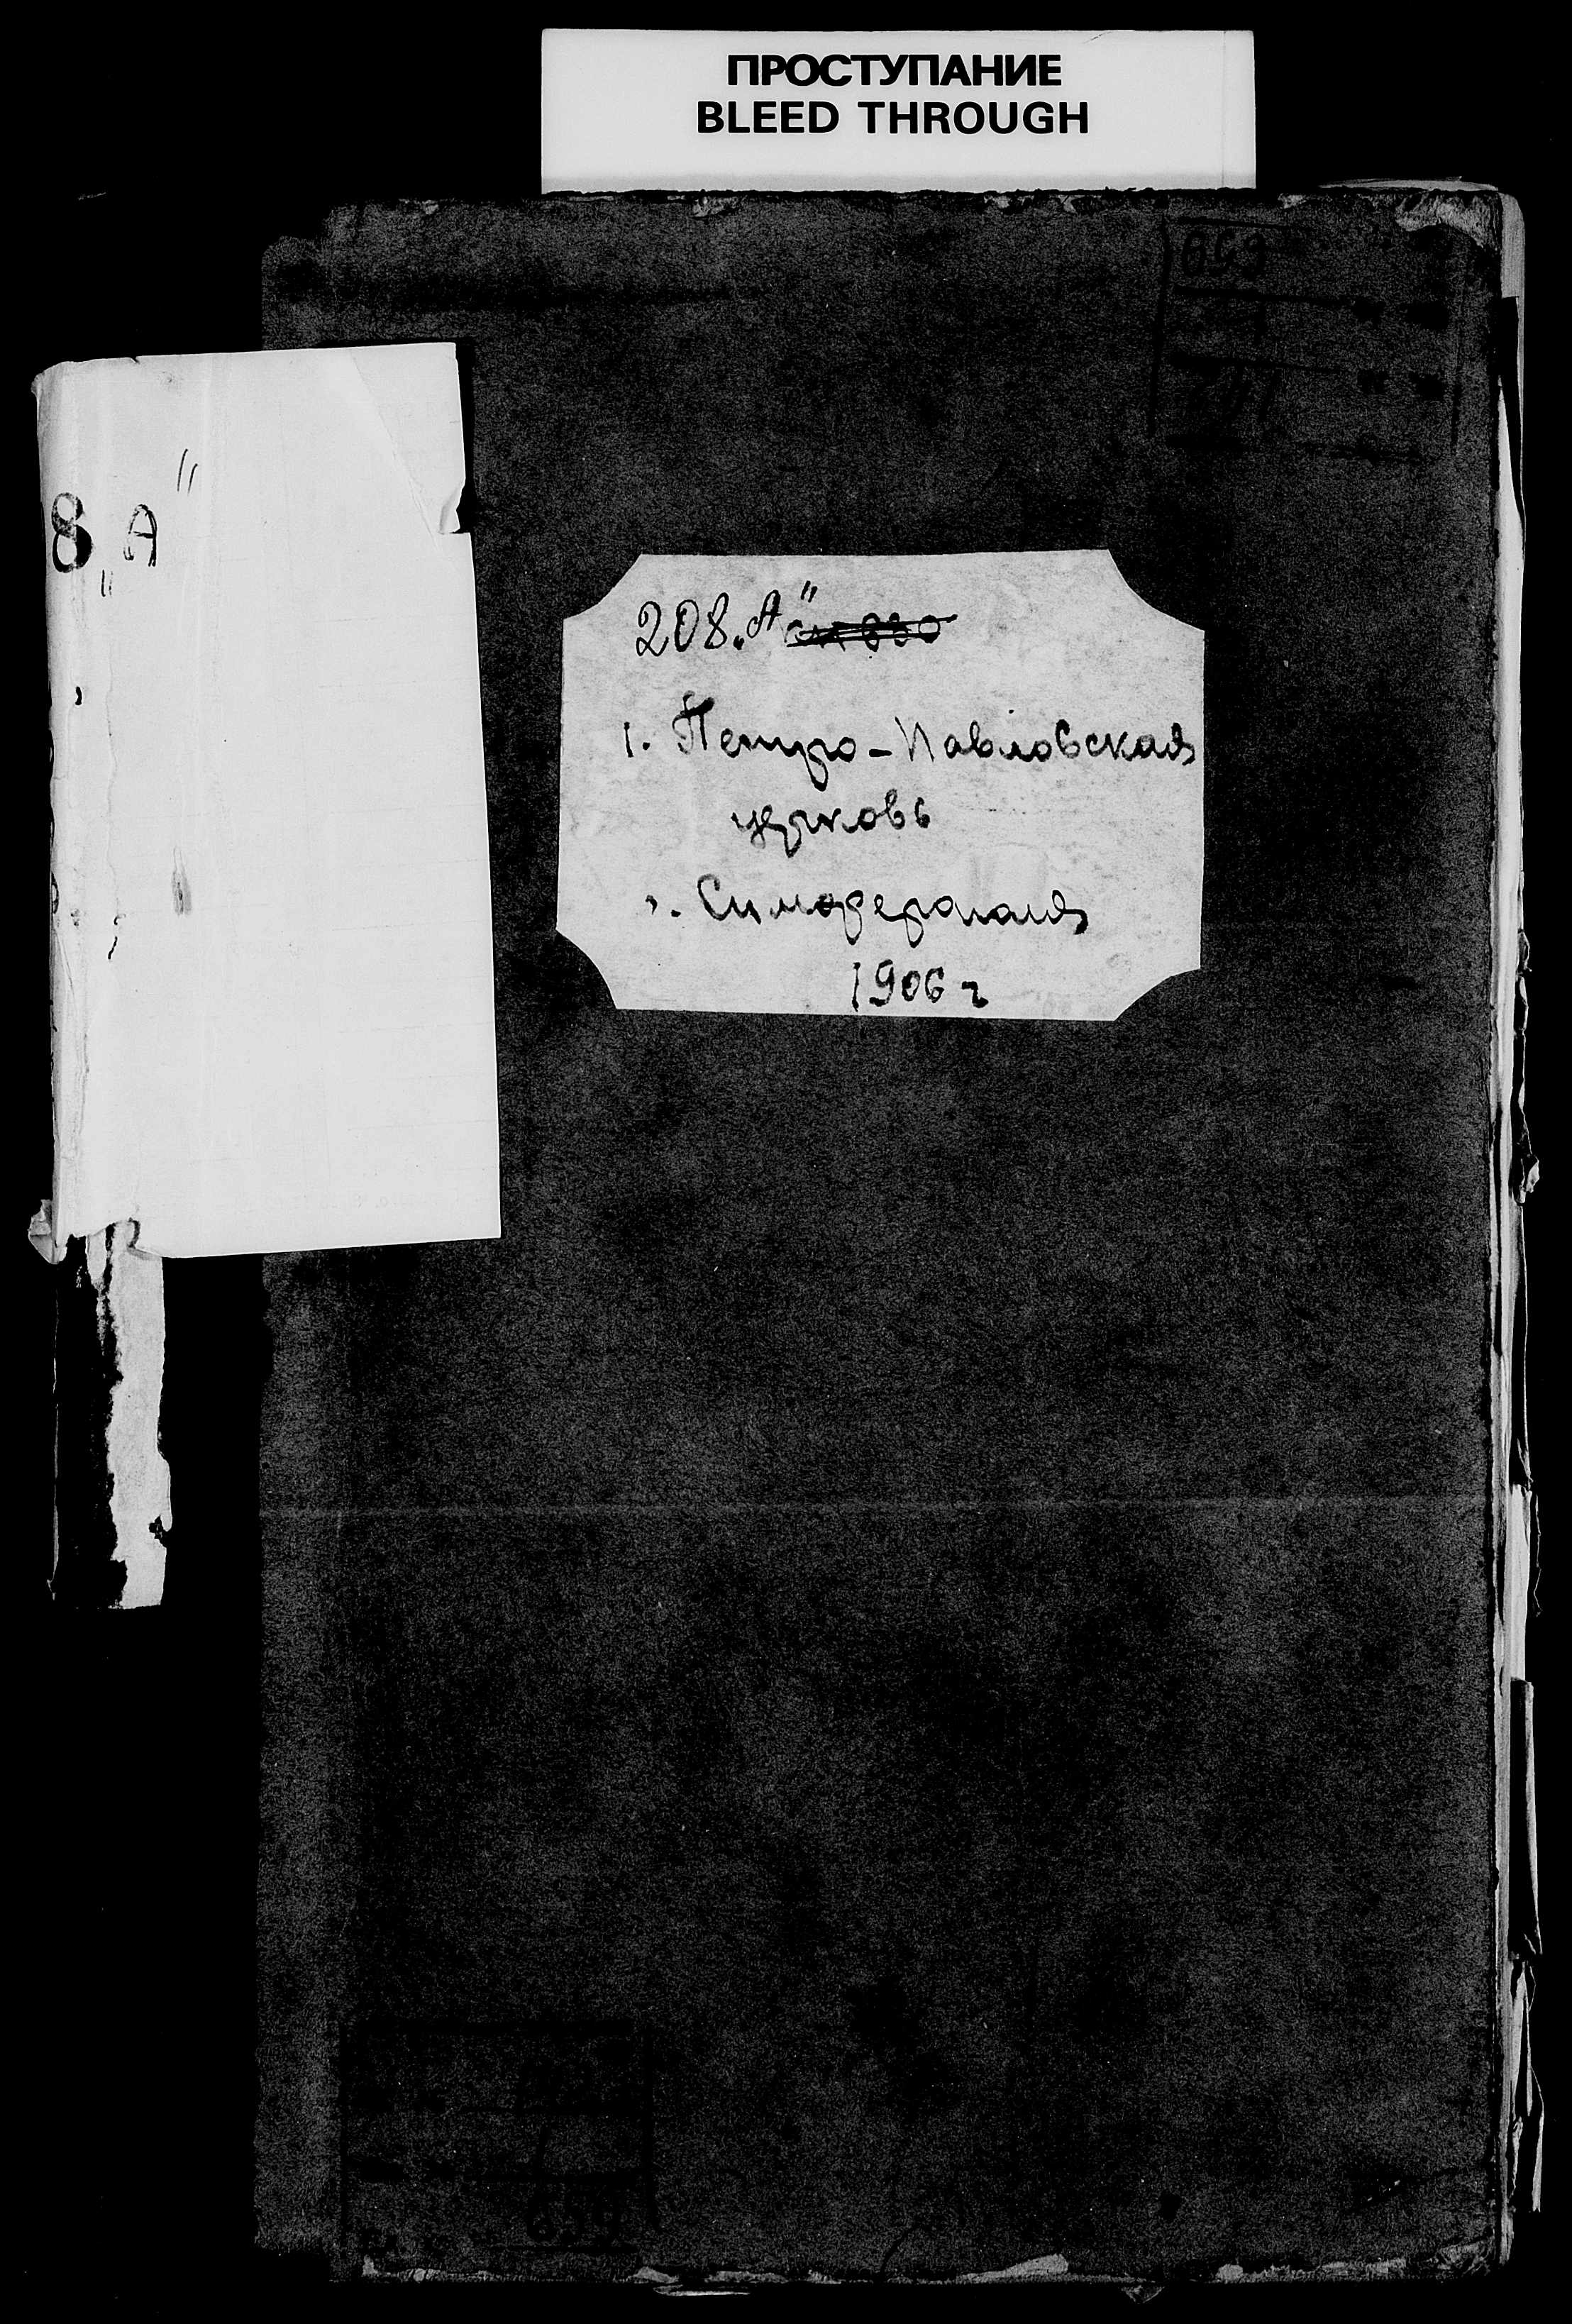 ПРОСТУПАНИЕ
BLEED THROUGH
8 „А"
208 „А"
1. Петро-Павловская
церковь
г. Симферополя
1906 г